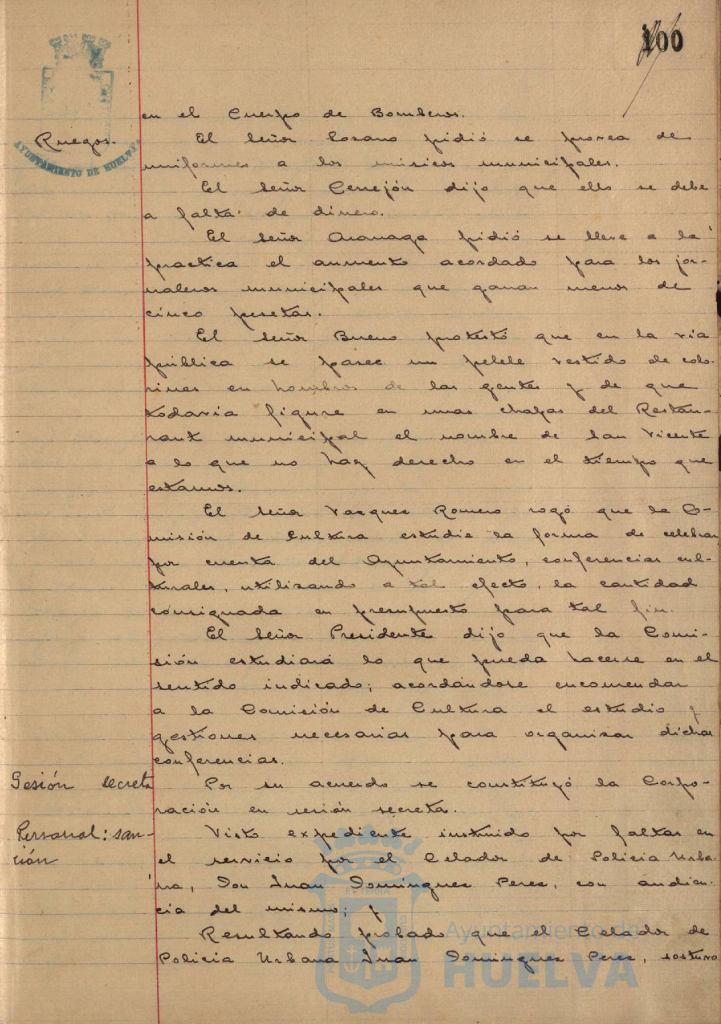 100
en el Cuerpo de Bomberos.
AYUNTAMIENTO DE HUELVA
Ruegos.
El Señor Lozano pidió se provea de
uniformes a los músicos municipales.
El Señor Cerrejón dijo que ello se debe
a falta de dinero.
El Señor Aranaga pidió se lleve a la
practica el aumento acordado para los jor-
naleros municipales que ganan menos de
cinco pesetas.
El Señor Bueno protestó que en la via
pública se pasee un pelele vestido de colo-
rines en hombros de las gentes y de que
todavia figure en unas chapas del Restau-
rant municipal el nombre de San Vicente
a lo que no hay derecho en el tiempo que
estamos.
El Señor Vazquez Romero rogó que la Co-
misión de Cultura estudie la forma de celebrar
por cuenta del Ayuntamiento, conferencias cul-
turales, utilizando a tal efecto, la cantidad
consignada en presupuesto para tal fin.
El Señor Presidente dijo que la Comi-
sión estudiará lo que pueda hacerse en el
sentido indicado; acordándose encomendar
a la Comisión de Cultura el estudio y
gestiones necesarias para organizar dichas
conferencias.
Sesión secreta
Por su acuerdo se constituyó la Corpo-
ración en sesión secreta.
Personal: san-
ción
Visto expediente instruido por faltas en
el servicio por el Celador de Policia Urba-
na, Don Juan Dominguez Perez, con audien-
cia del mismo; y
Resultando probado que el Celador de
Policia Urbana Juan Dominguez Perez, sostuvo
Ayuntamiento de
HUELVA